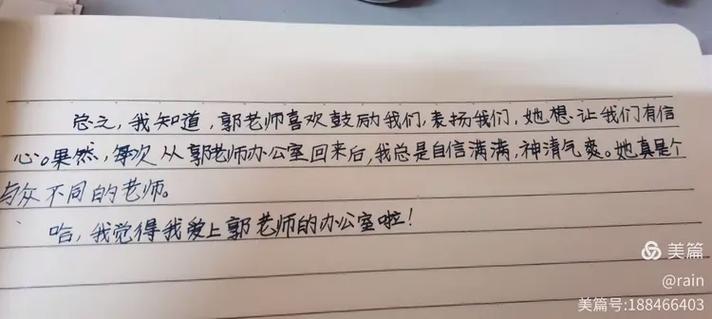 总之，我知道，郭老师喜欢鼓励我们，表扬我们，她想让我们有信
心。果然，每次从郭老师办公室回来后，我总是自信满满，神清气爽。她真是个
与众不同的老师。
哈，我觉得我爱上郭老师的办公室啦！
美篇
@rain
美篇号:188466403